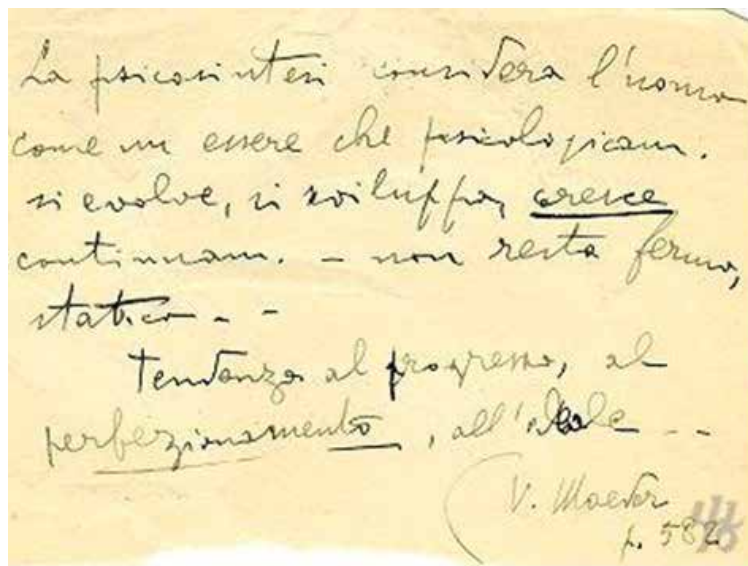 La psicosintesi considera l'uomo
come un essere che psicologicam.
si evolve, si sviluppa, cresce
continuam. - non resta fermo,
statico - -
Tendenza al progresso, al
perfezionamento, all'ideale - -
V. Maeder
p. 582